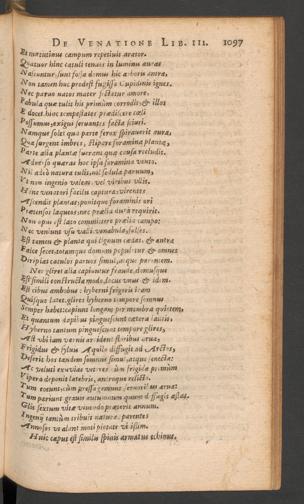 DE VENATIONE LIB. III. 1097
Et notissimus campum repetiuit arator.
Quatuor hinc catuli tenues in luminis auras
Nascuntur, sunt fossa domus hic arboris antra,
Non tamen huic prodest fugisse Cupidinis ignes.
Nec paruo natos mater sectatur amore.
Fabula quæ tulit his primùm corrodis, & illos
E docet hinc tempestates prædicere cœli
Possumus,
Namque solet qua parte ferox spirauerit aura,
Qua surgent imbres, stipare foramina plantæ,
Parte alia plantæ
Aduerso quæras hoc ipsa foramina vento.
Nil natura tulit, nil sedula paruum,
Vi non ingenio valeat, vel viribus vllis.
Hinc venatori facilis captura: virentes
Ascendis plantas; ponitque foraminis ori
Prætensos laqueos, nec prælia dura requirit.
Non opus est illato committere prælia campo:
Nec veniunt vsu valli, venabula, falces.
Est tamen & planta qui lignum cædat, & antra
Falce secet, totamque domum populetur & omnes
Diripias catulos paruos simul, atque parentem.
Nec glires alia capiuntur fraude, domusque
Est simili constructa modo, locus vnus & idem.
Est cibus ambobus: hyberni frigoris
Quisque latet, glires hyberno tempore somnus
Semper habet: capiunt longum per membra quietem,
Et quantum dapibus pinguescunt cætera
Hyberno tantùm pinguescunt tempore glires,
Ast vbi iam vernis arrident floribus arua,
Frigidus & syluis Aquilo diffugit ad Arctos,
Deserit hos tandem somnus simul, atque senectæ
Ac veluti exuuias veteres: cùm frigida primùm
Vipera deponit latebris, antroque relicto.
Tum coëunt:
Tum pariunt grauis autumnum quum diffugit æstas.
Glis sextum vitæ viuendo præterit annum.
Ingenij tantùm tribuit natura: parentes
Annosos vt alant nati pietate vt ipsum.
Huic capus est similis spinis armatus echinus.